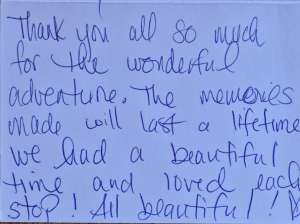 Thank you all so much
for the wonderful
adventure. The memories
made will last a lifetime
we had a beautiful
time and loved each
stop! All beautiful!